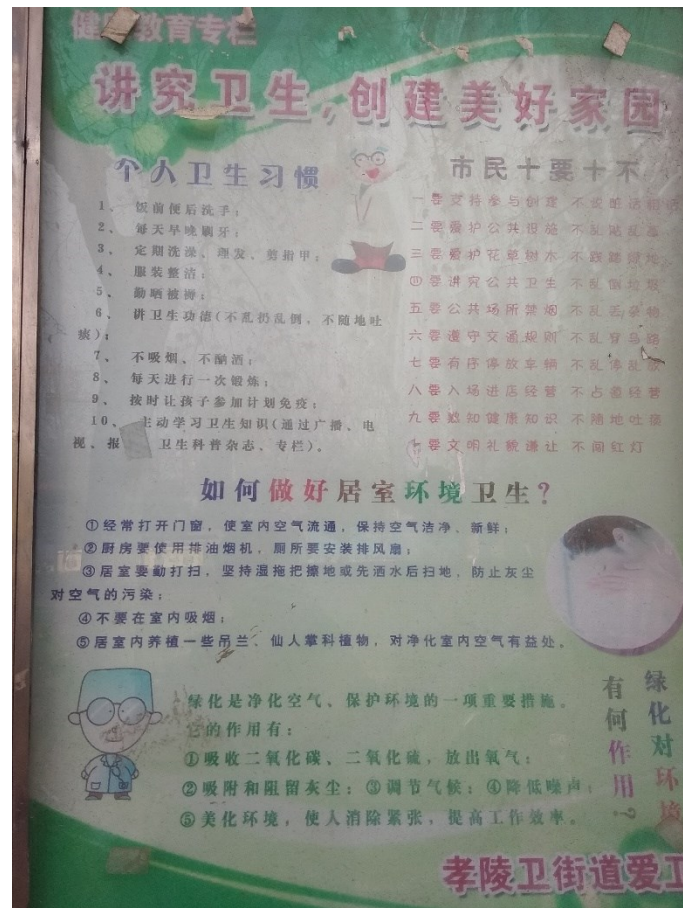 健康教育专栏
讲究卫生，创建美好家园
个人卫生习惯
1、 饭前便后洗手；
2、 每天早晚刷牙；
3、 定期洗澡、理发、剪指甲；
4、 服装整洁；
5、 勤晒被褥；
6、 讲卫生功洁(不乱扔乱倒、不随地吐
痰)；
7、 不吸烟、不酗酒；
8、 每天进行一次锻炼；
9、 按时让孩子参加计划免疫；
10、 主动学习卫生知识(通过广播、电
视、报 卫生科普杂志、专栏)。
市民十要十不
一要支持参与创建 不说脏话
二要爱护公共设施 不乱贴乱
三要爱护花草树木 不践踏绿地
四要讲究公共卫生 不乱倒垃圾
五要公共场所禁烟 不乱丢杂物
六要遵守交通规则 不乱穿马路
七要有序停放车辆 不乱停乱放
八要入场进店经营 不占道经营
九要 知健康知识 不随地吐痰
十要文明礼貌谦让 不闯红灯
如何做好居室环境卫生？
①经常打开门窗，使室内空气流通，保持空气洁净、新鲜；
②厨房要使用排油烟机，厕所要安装排风扇；
③居室要勤打扫，坚持湿拖把擦地或先洒水后扫地，防止灰尘
对空气的污染；
④不要在室内吸烟；
⑤居室内养植一些吊兰、仙人掌科植物，对净化室内空气有益处。
绿化对环境
有何作用？
绿化是净化空气、保护环境的一项重要措施。
它的作用有：
①吸收二氧化碳、二氧化硫，放出氧气；
②吸附和阻留灰尘；③调节气候；④降低噪声；
⑤美化环境，使人消除紧张，提高工作效率。
孝陵卫街道爱卫